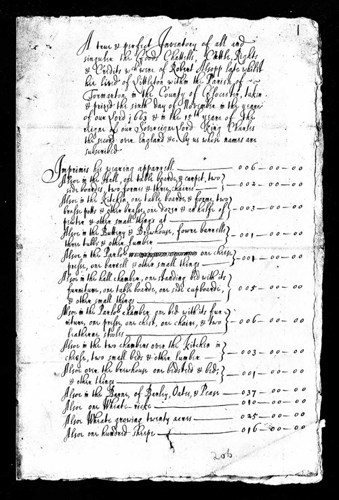 1
A true & perfect Inventory of all and
singular the Goods Chattells, Cattle, Rights
& Credits of Robert Alsopp late whilst
he lived of Littleton within the Parish of
in the County of Glocester, taken
& prized the sixth day of November in the yeare
of our Lord 1663 & in the 15th yeare of the
reigne of our Soveraigne Lord King Charles
the second over England &c. By us whose names are
subscribed
Imprimis his wearing apparell 006-00-00
Alsoe in the Hall, one table board, & carpet, two
side boards, two formes & three chaires 002-00-00
Alsoe in the Kitchin, one table board, & forme, two
brasse potts & other brasse, one dozen & a halfe of
pewter & other small things 003-00-00
Alsoe in the Buttery & Brewhouse, foure barrells
three tubbs & other lumber 001-00-00
Alsoe in the Parlor one cheese
presse, one barrell & other small things 004-00-00
Alsoe in the hall chamber, one standing bed with its
furniture, one table board, one side cupboard,
& other small things 005-00-00
Alsoe in the Parlor chamber one bed with its fur
niture, one presse, one chest, one chaire, & two
leatherne stooles 006-00-00
Alsoe in the two chambers over the Kitchin a
cheste, two small beds & other lumber 003-00-00
Alsoe over the brewhouse one bedsteed & bed,
& other things 001-00-00
Alsoe in the Barne, of Barley, Oates, & Pease 037-00-00
Alsoe one Wheate-ricke 010-00-00
Alsoe Wheate growing twenty acres 025-00-00
Alsoe one hundred sheepe 016-00-00
206